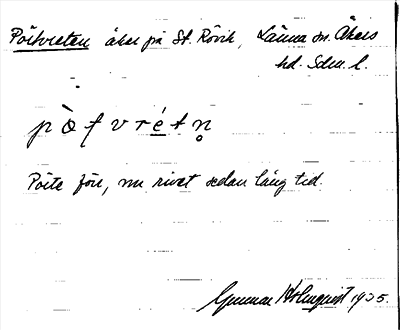 Pöitvreten åker på St. Rövik, Länna sn. Åkers
hd. Sdm. l.
Pöite förr, nu rivet sedan lång tid.
Gunnar Holmquist 1935.